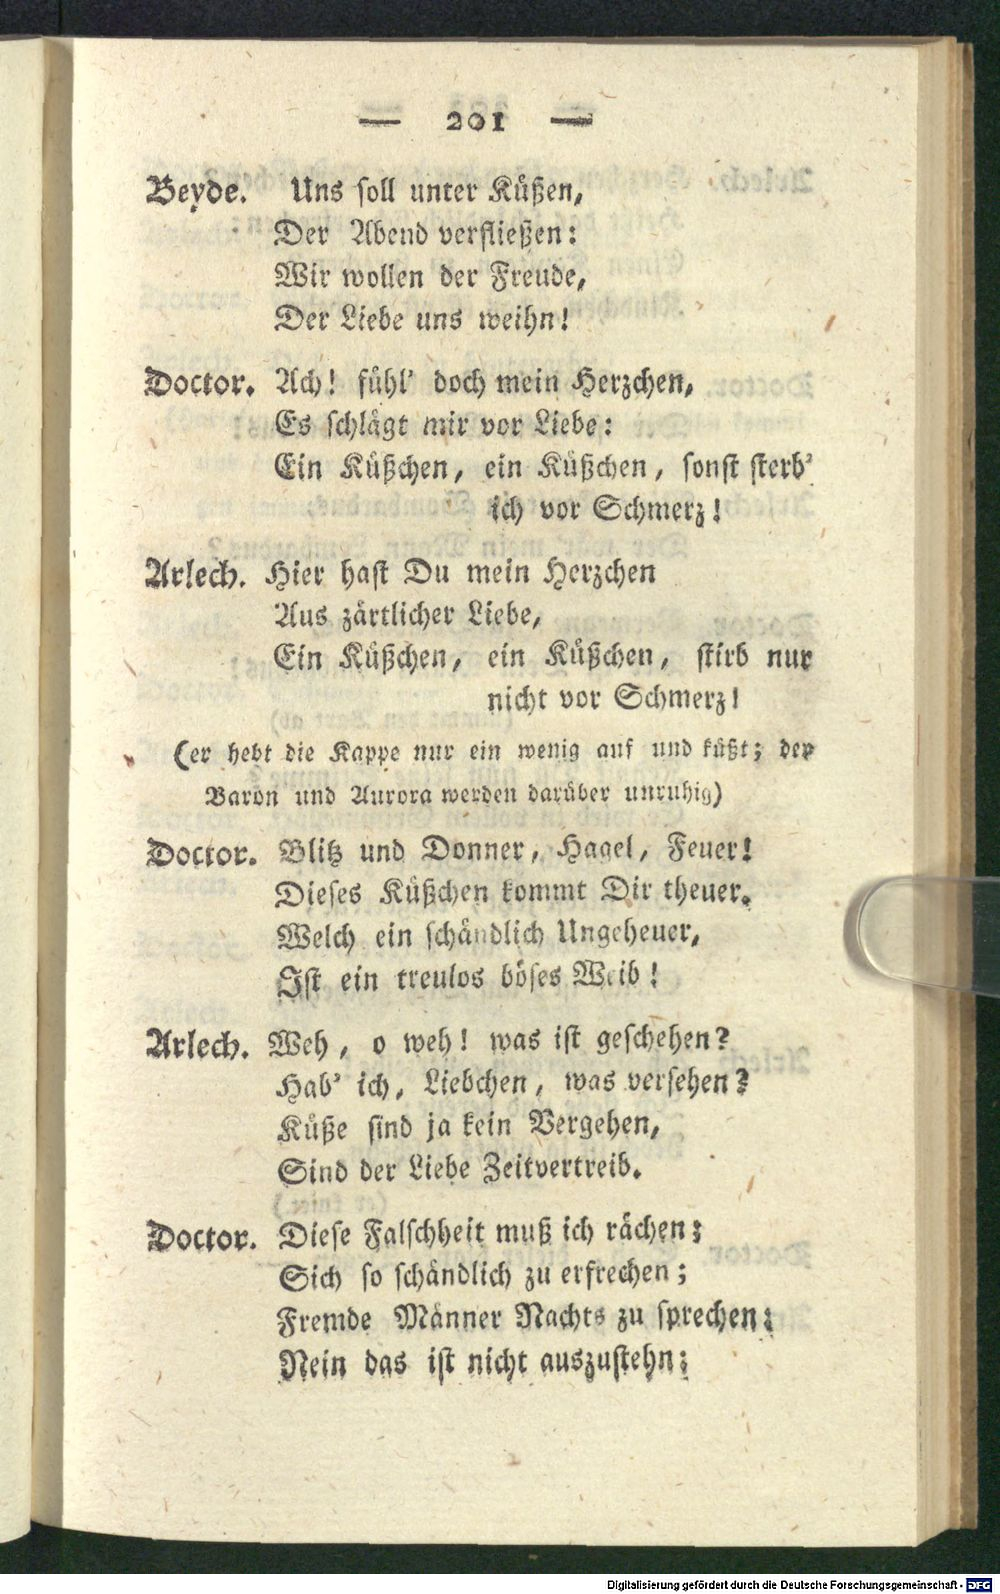 — 201 —
Beyde. Uns ſoll unter Küßen,
Der Abend verfließen:
Wir wollen der Freude,
Der Liebe uns weihn!
Doctor. Ach! fühl' doch mein Herzchen,
Es ſchlägt mir vor Liebe:
Ein Küßchen, ein Küßchen, ſonſt ſterb'
ich vor Schmerz!
Arlech. Hier haſt Du mein Herzchen
Aus zärtlicher Liebe,
Ein Küßchen, ein Küßchen, ſtirb nur
nicht vor Schmerz!
(er hebt die Kappe nur ein wenig auf und küßt; der
Baron und Aurora werden darüber unruhig)
Doctor. Blitz und Donner, Hagel, Feuer!
Dieſes Küßchen kommt Dir theuer.
Welch ein ſchändlich Ungeheuer,
Iſt ein treulos böſes Weib!
Arlech. Weh, o weh! was iſt geſchehen?
Hab' ich, Liebchen, was verſehen?
Küße ſind ja kein Vergehen,
Sind der Liebe Zeitvertreib.
Doctor. Dieſe Falſchheit muß ich rächen;
Sich ſo ſchändlich zu erfrechen;
Fremde Männer Nachts zu ſprechen;
Nein das iſt nicht auszuſtehn;
Digitalisierung gefördert durch die Deutsche Forschungsgemeinschaft - DFG